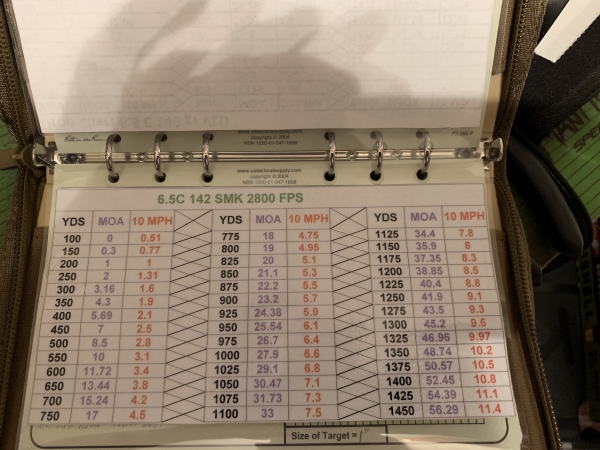 www.uatacticalsupply.com
copyright © 2004
NSN 1220-01-547-1898
6.5C 142 SMK 2800 FPS
YDS MOA 10 MPH YDS MOA 10 MPH YDS MOA 10 MPH
100 0 0.51 775 18 4.75 1125 34.4 7.8
150 0.3 0.77 800 19 4.95 1150 35.9 8
200 1 1 825 20 5.1 1175 37.35 8.3
250 2 1.31 850 21.1 5.3 1200 38.85 8.5
300 3.16 1.6 875 22.2 5.5 1225 40.4 8.8
350 4.3 1.9 900 23.2 5.7 1250 41.9 9.1
400 5.69 2.1 925 24.38 5.9 1275 43.5 9.3
450 7 2.5 950 25.54 6.1 1300 45.2 9.6
500 8.5 2.8 975 26.7 6.4 1325 46.96 9.97
550 10 3.1 1000 27.9 6.6 1350 48.74 10.2
600 11.72 3.4 1025 29.1 6.8 1375 50.57 10.5
650 13.44 3.8 1050 30.47 7.1 1400 52.45 10.8
700 15.24 4.2 1075 31.73 7.3 1425 54.39 11.1
750 17 4.5 1100 33 7.5 1450 56.29 11.4
Size of Target = 1"